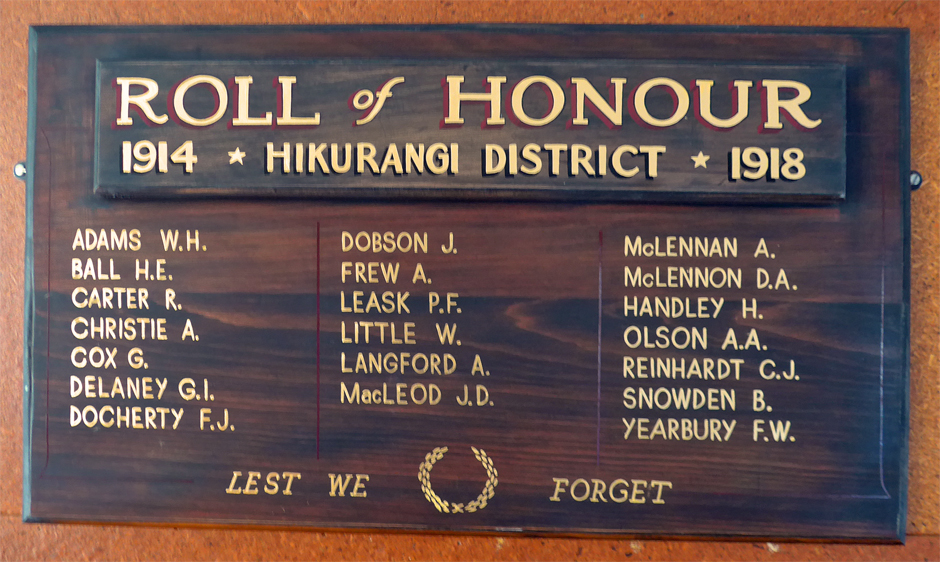 ROLL of HONOUR
1914 ★ HIKURANGI DISTRICT ★ 1918
ADAMS W.H.
BALL H.E.
CARTER R.
CHRISTIE A.
COX G.
DELANEY G.I.
DOCHERTY F.J.
DOBSON J.
FREW A.
LEASK P.F.
LITTLE W.
LANGFORD A.
MacLEOD J.D.
McLENNAN A.
McLENNON D.A.
HANDLEY H.
OLSON A.A.
REINHARDT C.J.
SNOWDEN B.
YEARBURY F.W.
LEST WE FORGET